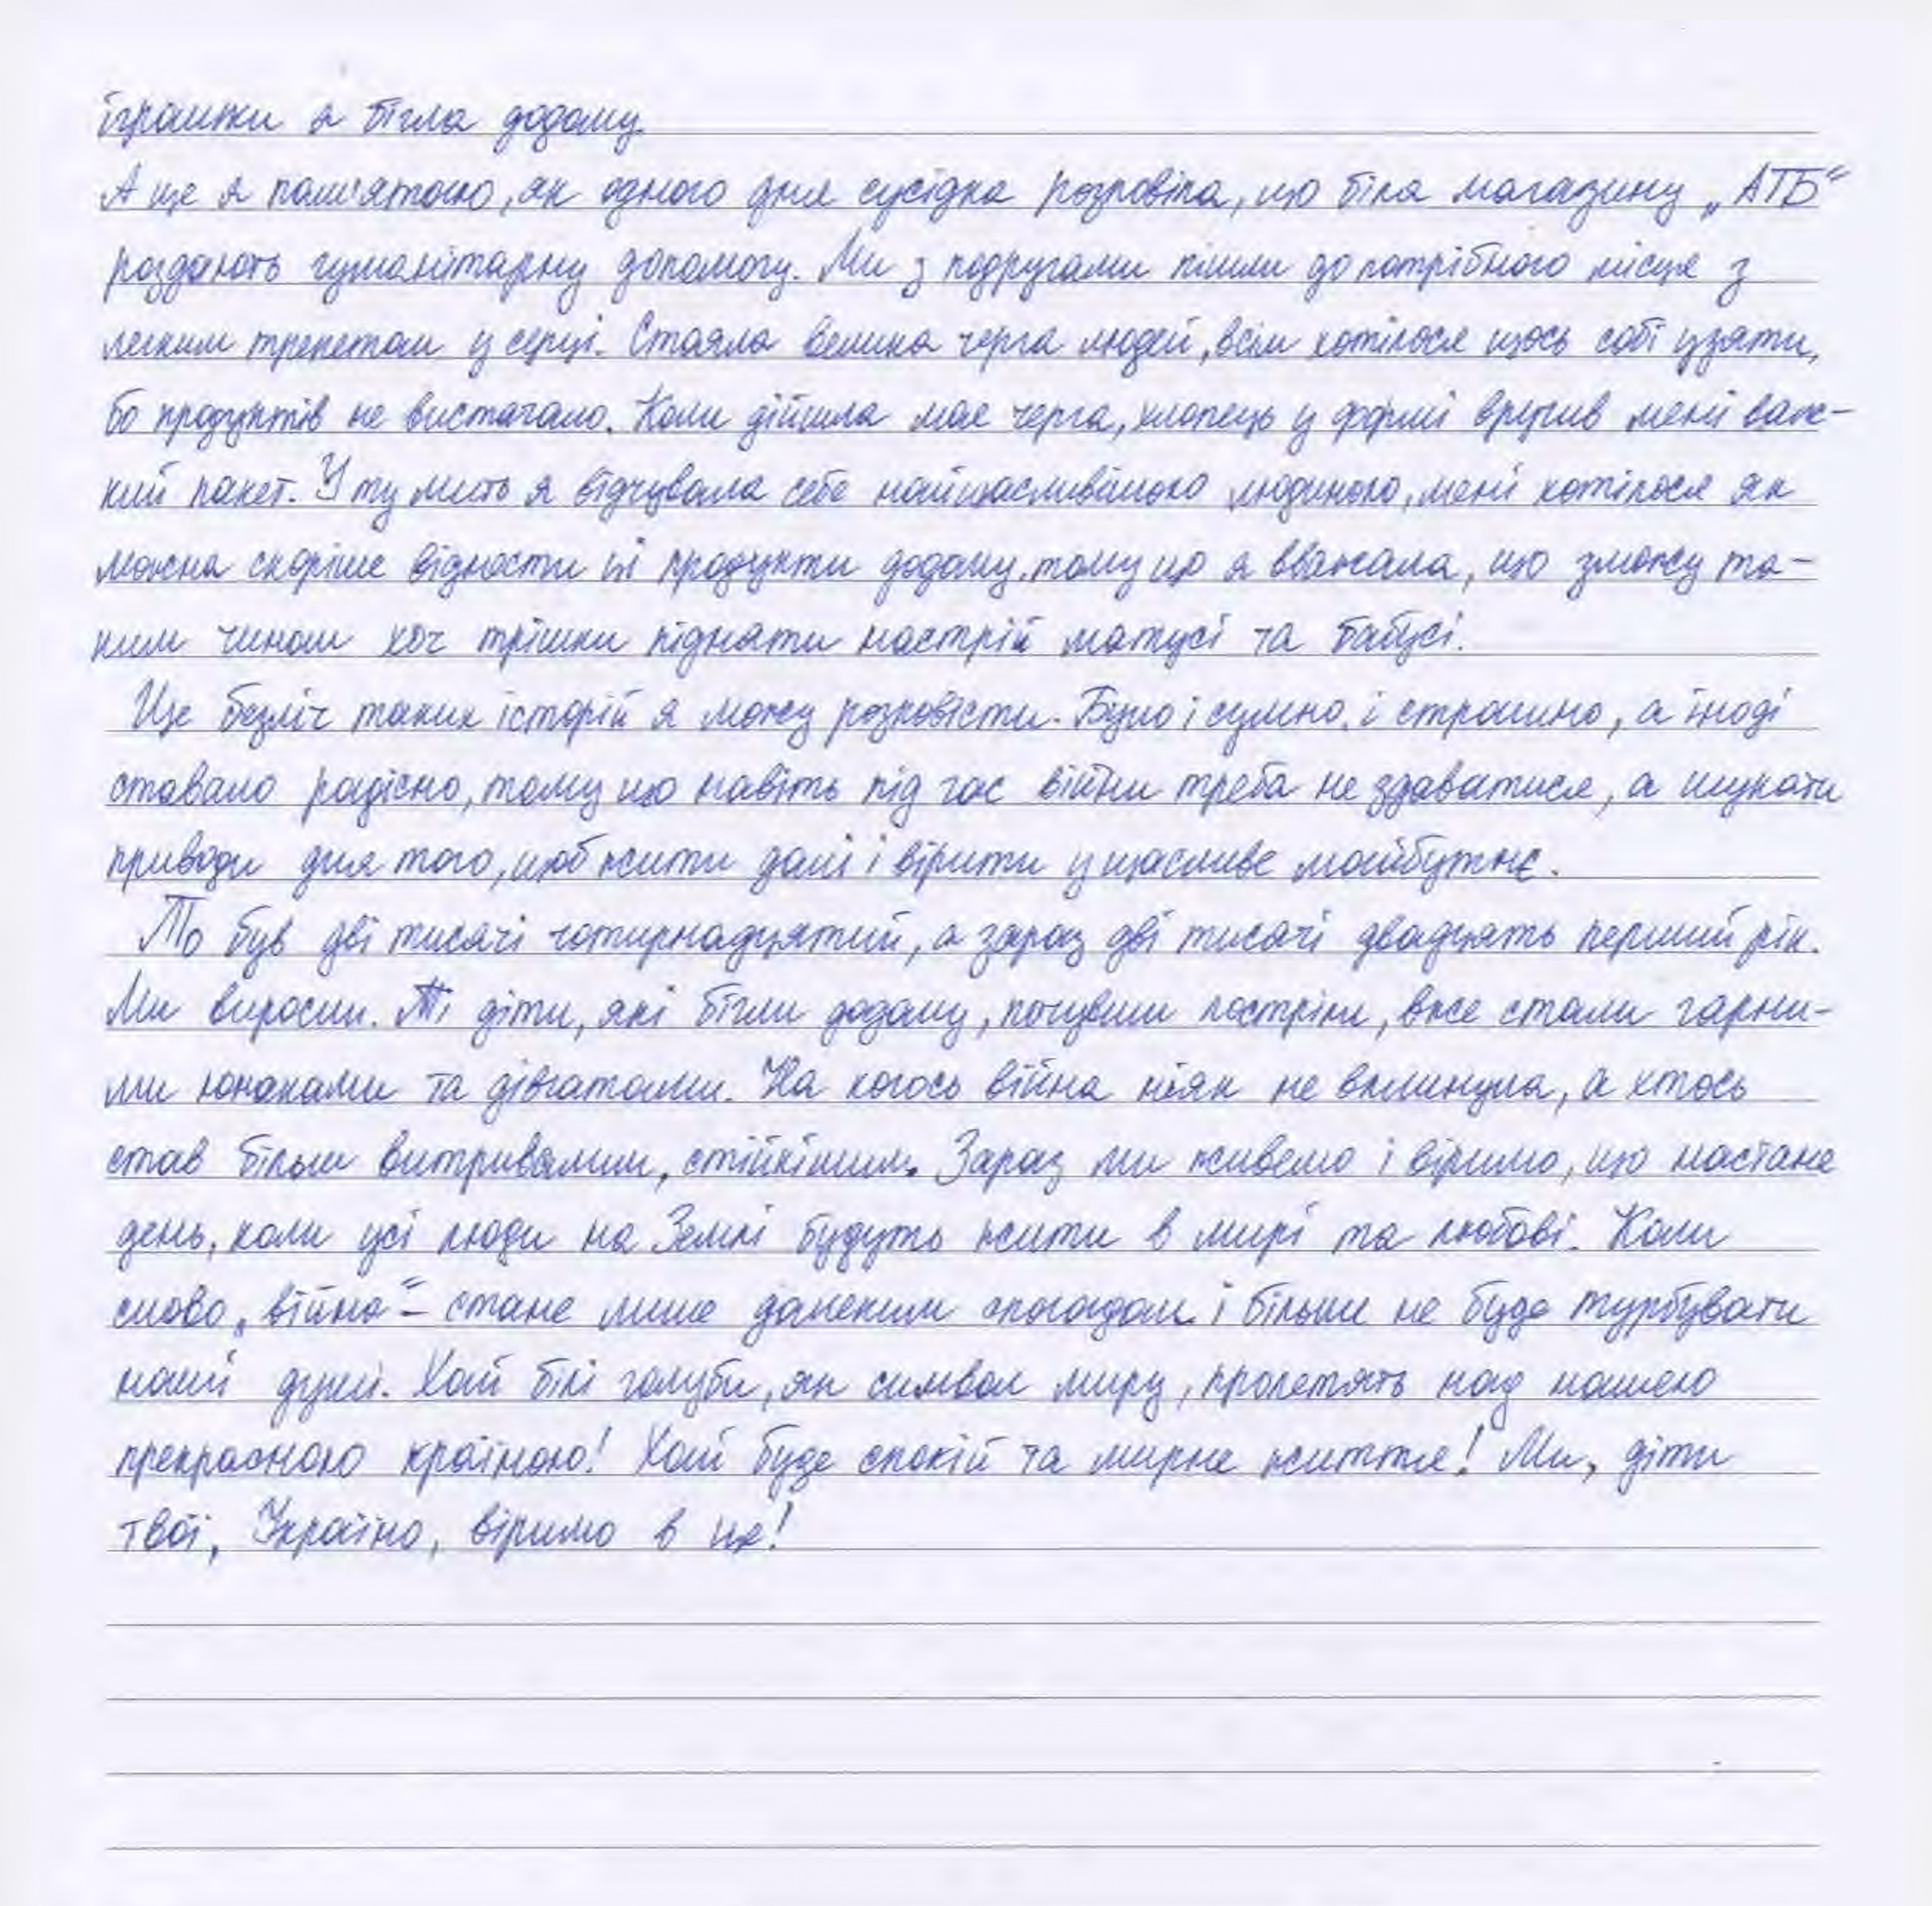 іграшки я бігла додому.
А ще я пам'ятаю, як одного дня сусідка розповіла, що біля магазину „АТБ“
роздають гуманітарну допомогу. Ми з подругами пішли до потрібного місця з
легким трепетом у серці. Стояла велика черга людей, всім хотілося щось собі узяти,
бо продуктів не вистачало. Коли дійшла моя черга, хлопець у формі вручив мені важ-
кий пакет. У ту мить я відчувала себе найщасливішою людиною, мені хотілося як
можна скоріше віднести ці продукти додому, тому що я вважала, що зможу та-
ким чином хоч трішки підняти настрій матусі та бабусі.
Ще безліч таких історій я можу розповісти. Було і сумно, і страшно, а іноді
ставало радісно, тому що навіть під час війни треба не здаватися, а шукати
приводи для того, щоб жити далі і вірити у щасливе майбутнє.
То був дві тисячі чотирнадцятий, а зараз дві тисячі двадцять перший рік.
Ми виросли. Ті діти, які бігли додому, почувши постріли, вже стали гарни-
ми юнаками та дівчатами. На когось війна ніяк не вплинула, а хтось
став більш витривалим, стійкішим. Зараз ми живемо і віримо, що настане
день, коли усі люди на Землі будуть жити в мирі та любові. Коли
слово „війна“ – стане лише далеким спогадом і більше не буде турбувати
наші душі. Хай білі голуби, як символ миру, пролетять над нашою
прекрасною країною! Хай буде спокій та мирне життя! Ми, діти
твої, Україно, віримо в це!